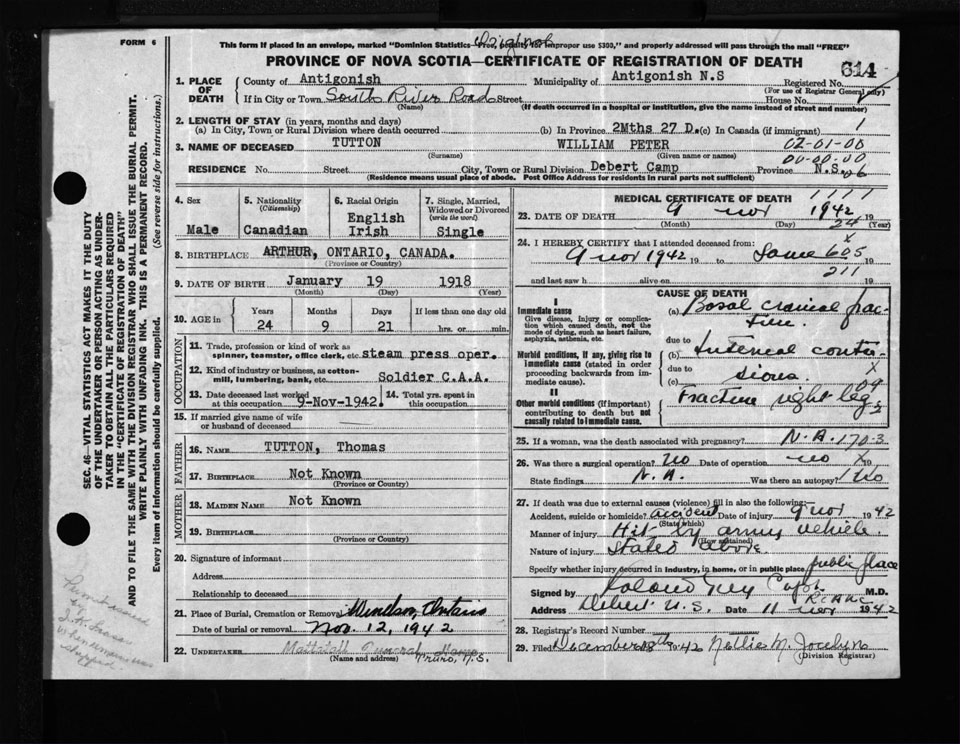 FORM 6
Original
This form if placed in an envelope, marked "Dominion Statistics—Free, penalty for improper use $300," and properly addressed will pass through the mail "FREE"
PROVINCE OF NOVA SCOTIA—CERTIFICATE OF REGISTRATION OF DEATH
614
1. PLACE OF DEATH
County of Antigonish Municipality of Antigonish N.S Registered No.
(For use of Registrar General only)
If in City or Town South River Road Street House No.
(Name) (If death occurred in a hospital or institution, give the name instead of street and number)
2. LENGTH OF STAY (in years, months and days)
(a) In City, Town or Rural Division where death occurred (b) In Province 2Mths 27 D. (c) In Canada (if immigrant) 1
3. NAME OF DECEASED TUTTON WILLIAM PETER 02-01-00
(Surname) (Given name or names) 00-00-00
RESIDENCE No. Street City, Town or Rural Division Debert Camp Province N.S. 06
(Residence means usual place of abode. Post Office Address for residents in rural parts not sufficient)
4. Sex
Male
5. Nationality
(Citizenship)
Canadian
6. Racial Origin
English
Irish
7. Single, Married, Widowed or Divorced
(write the word)
Single
8. BIRTHPLACE ARTHUR, ONTARIO, CANADA.
(Province or Country)
9. DATE OF BIRTH January 19 1918
(Month) (Day) (Year)
10. AGE in Years Months Days If less than one day old
24 9 21 hrs. or min.
OCCUPATION
11. Trade, profession or kind of work as spinner, teamster, office clerk, etc. steam press oper.
12. Kind of industry or business, as cotton-mill, lumbering, bank, etc. Soldier C.A.A.
13. Date deceased last worked at this occupation 9-Nov-1942. 14. Total yrs. spent in this occupation.
15. If married give name of wife or husband of deceased
FATHER
16. NAME TUTTON, Thomas
17. BIRTHPLACE Not Known
(Province or Country)
MOTHER
18. MAIDEN NAME Not Known
19. BIRTHPLACE
(Province or Country)
20. Signature of informant
Address
Relationship to deceased
21. Place of Burial, Cremation or Removal Windsor, Ontario
Date of burial or removal Nov. 12, 1942
22. UNDERTAKER Mattatall Funeral Home
(Name and address) Truro, N.S.
MEDICAL CERTIFICATE OF DEATH
23. DATE OF DEATH 9 Nov 1942 19
(Month) (Day) 24 (Year)
24. I HEREBY CERTIFY that I attended deceased from:
9 Nov 1942 19 to Same 605
and last saw h alive on 211 19
CAUSE OF DEATH
I
Immediate cause
Give disease, injury or complication which caused death, not the mode of dying, such as heart failure, asphyxia, asthenia, etc.
Morbid conditions, if any, giving rise to immediate cause (stated in order proceeding backwards from immediate cause).
II
Other morbid conditions (if important) contributing to death but not causally related to immediate cause.
(a) Basal cranial frac-
ture.
due to
(b) Internal contu-
due to sions.
(c)
Fracture right leg
25. If a woman, was the death associated with pregnancy? N.A. 170-3
26. Was there a surgical operation? No Date of operation no
State findings N.A. Was there an autopsy? No
27. If death was due to external causes (violence) fill in also the following:
Accident, suicide or homicide? accident Date of injury 9 Nov 1942
(State which)
Manner of injury Hit by army vehicle.
(How sustained)
Nature of injury Stated above
Specify whether injury occurred in industry, in home, or in public place public place
Signed by Capt. M.D.
Address Debert N.S. Date 11 Nov 1942
28. Registrar's Record Number
29. Filed December 1942 Nellie M. Jocelyn
(Division Registrar)
SEC. 46—VITAL STATISTICS ACT MAKES IT THE DUTY
OF THE UNDERTAKER OR PERSON ACTING AS UNDER-
TAKER TO OBTAIN ALL THE PARTICULARS REQUIRED
IN THE "CERTIFICATE OF REGISTRATION OF DEATH"
AND TO FILE THE SAME WITH THE DIVISION REGISTRAR WHO SHALL ISSUE THE BURIAL PERMIT.
WRITE PLAINLY WITH UNFADING INK. THIS IS A PERMANENT RECORD.
Every item of information should be carefully supplied. (See reverse side for instructions.)